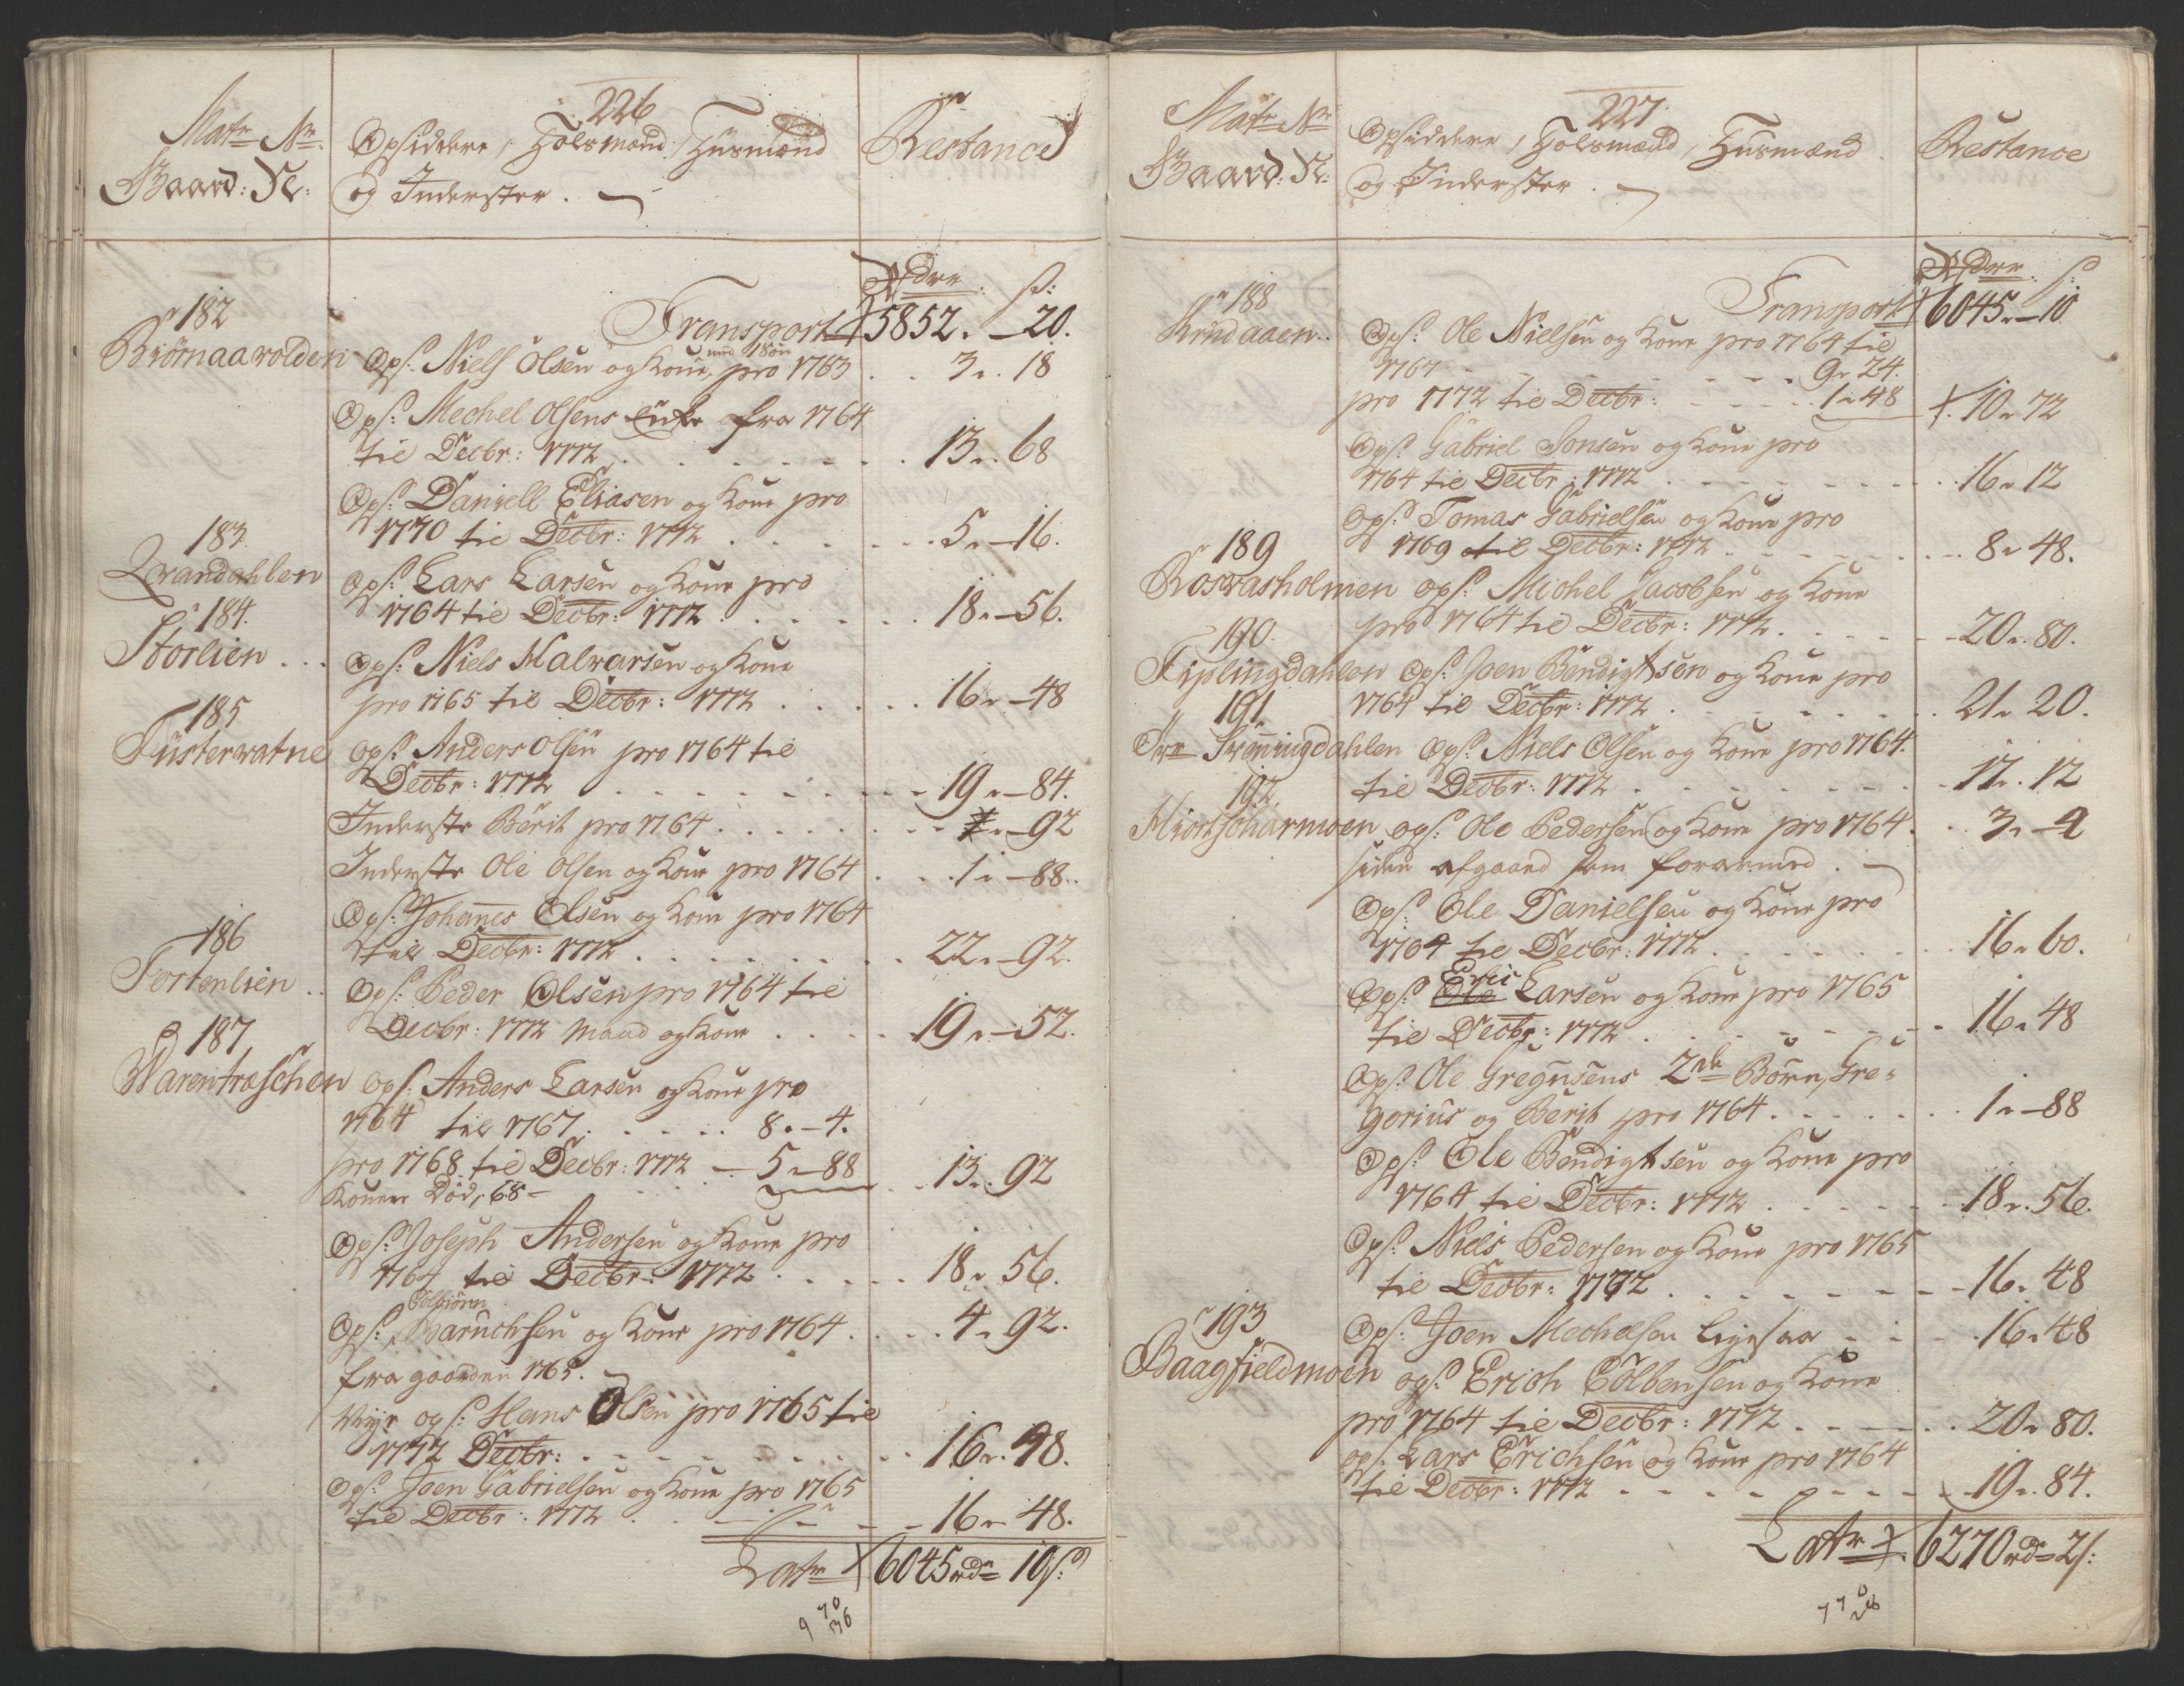 226
Matr: Nr:
Gaard: N:
Opsiddere, Følsmænd, Huusmænd
og Inderster.
Restance
Rdr: s:
Transport 5852. 20.
182
Biörnaavolden Ops: Niels Olsen og Kone, med 1 Søn pro 1763 . . 3 . 18
Ops: Mechel Olsens Enke fra 1764
til Decbr: 1772 . . . . 13 . 68
Ops: Daniell Eliasen og Kone pro
1770 til Decbr: 1772 . . . . 5 . 16.
183.
Qvandahlen Ops: Lars Larsen og Kone pro
1764 til Decbr: 1772 . . . . 18 . 56.
184.
Storlien . . . Ops: Niels Halvarsen og Kone
pro 1765 til Decbr: 1772 . . . . 16 . 48
185
Tüstervatne Ops: Anders Olsen pro 1764 til
Decbr: 1772 . . . . 19 . 84.
Inderste Berit pro 1764 . . . . 92
Inderste Ole Olsen og Kone pro 1764 . . . 1 . 88.
Ops: Johannes Olsen og Kone pro 1764
til Decbr: 1772 . . . . 22 . 92.
186
Tortenlien . . Ops: Peder Olsen pro 1764 til
Decbr: 1772 Mand og Kone . . . . 19 . 52.
187
Warentræschen Ops: Anders Larsen og Kone pro
1764 til 1767. . . . . 8 . 4.
pro 1768 til Decbr: 1772 - 5 - 88 . . 13 . 92
Konen Död, 68 -
Ops: Joseph Andersen og Kone pro
1764 til Decbr: 1772 . . . . 18 . 56.
Colbiörn
Ops: Baruchsen og Kone pro 1764 . . . . 4 . 92.
fra gaarden 1765.
Nye ops: Hans Olsen pro 1765 til
1772 Decbr: . . . . 16 . 48.
Ops: Joen Gabrielsen og Kone pro 1765
til Decbr: 1772 . . . . 16 . 48.
Latr 6045 rdr 10 s:
227
Matr: Nr
Gaard: N:
Opsiddere, Følsmænd, Huusmænd
og Inderster.
Restance
Rdr: s:
Transport 6045 . 10
188
Krudaaen . . Ops: Ole Nielsen og Kone pro 1764 til
1767 - - - - 9 . 24.
pro 1772 til Decbr: . . . . 1 . 48 10 . 72
Ops: Gabriel Jonsen og Kone pro
1764 til Decbr: 1772 . . . . 16 . 12
Ops: Tomas Gabrielsen og Kone pro
1769 til Decbr: 1772 . . . . 8 . 48.
189
Rosvasholmen Ops: Michel Jacobsen og Kone
pro 1764 til Decbr: 1772. . . . . 20 . 80.
190.
Fiplingdahlen Ops: Joen Bendigtsen og Kone pro
1764 til Decbr: 1772 . . . . 21 . 20.
191.
Svenningdahlen Ops: Niels Olsen og Kone pro 1764.
til Decbr: 1772 . . . . 17 . 12
192.
Hiortscharmoen Ops: Ole Pedersen og Kone pro 1764 . . . 3 . 4
siden afgaaed som forarmed .
Ops: Ole Danielsen og Kone pro
1764 til Decbr: 1772 . . . . 16 . 60.
Eric
Ops: Ole Larsen og Kone pro 1765
til Decbr: 1772 . . . . 16 . 48
Ops: Ole Gregusens 2de Börn, Gre-
gorius og Berit pro 1764 . . . . 1 . 88
Ops: Ole Bendigtsen og Kone pro
1764 til Decbr: 1772 . . . . 18 . 56.
Ops: Niels Pedersen og Kone pro 1765
til Decbr: 1772 . . . . 16 . 48
Ops: Joen Mechelsen ligesaa . . . 16 . 48
193
Baagfieldmoen Ops: Erich Colbensen og Kone
pro 1764 til Decbr: 1772 . . . . 20 . 80.
Ops: Lars Erichsen og Kone pro 1764
til Decbr: 1772 . . . . 19 . 84.
Latr 6270 rdr 2 s: